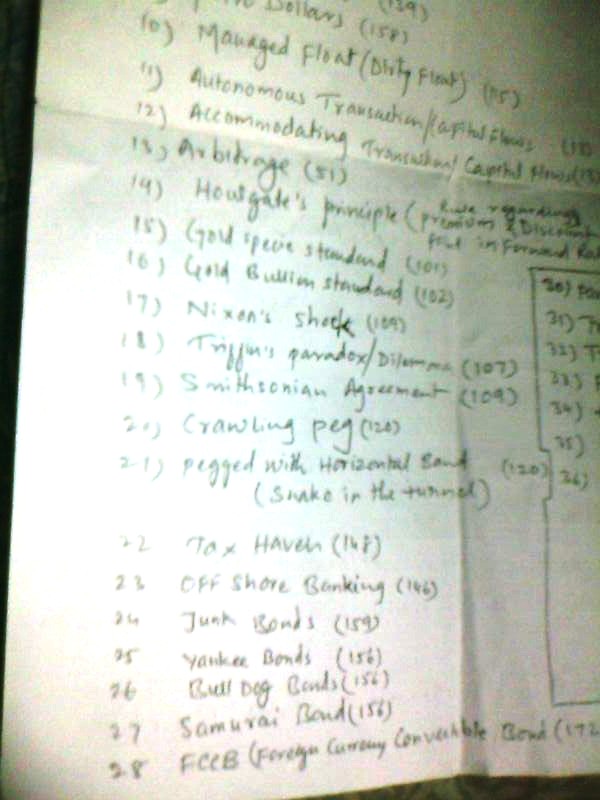 (139)
Dollars (158)
10) Managed Float (Dirty Float) (115)
11) Autonomous Transaction/Capital Flows
12) Accommodating Transaction/ Capital Flows
13) Arbitrage (51)
14) Howgate's principle (Rule regarding premium & Discount
in Forward
15) Gold specie standard (101)
16) Gold Bullion standard (102)
17) Nixon's shock (109)
18) Triffin's paradox/Dilemma (107)
19) Smithsonian Agreement (109)
20) Crawling peg (120)
21) pegged with Horizontal Band (120)
(Snake in the tunnel)
22 Tax Haven (148)
23 OFF Shore Banking (146)
24 Junk Bonds (159)
25 Yankee Bonds (156)
26 Bull Dog Bonds (156)
27 Samurai Bond (156)
28 FCCB (Foreign Currency Convertible Bond (172
30)
31)
32)
33)
34)
35)
36)